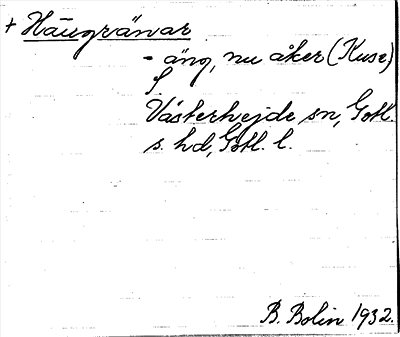 + Häugränar
- äng, nu åker (Kuse)
f
Västerhejde sn, Gotl.
s. hd, Gotl. l.
B. Bolin 1932.